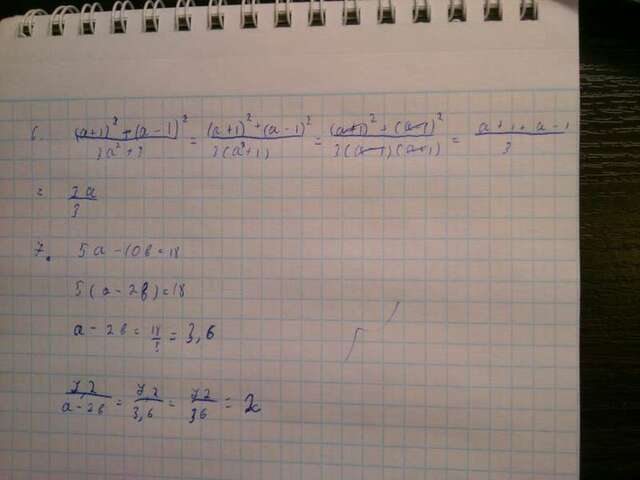 6. ((a+1)² + (a-1)²)/(3a² + 3) = ((a+1)² + (a-1)²)/(3(a²+1)) = ((a+1)² + (a-1)²)/(3(a-1)(a+1)) = (a+1+a-1)/3
= 2a/3
7. 5a - 10b = 18
5(a - 2b) = 18
a - 2b = 18/5 = 3,6
7,2/(a-2b) = 7,2/3,6 = 72/36 = 2